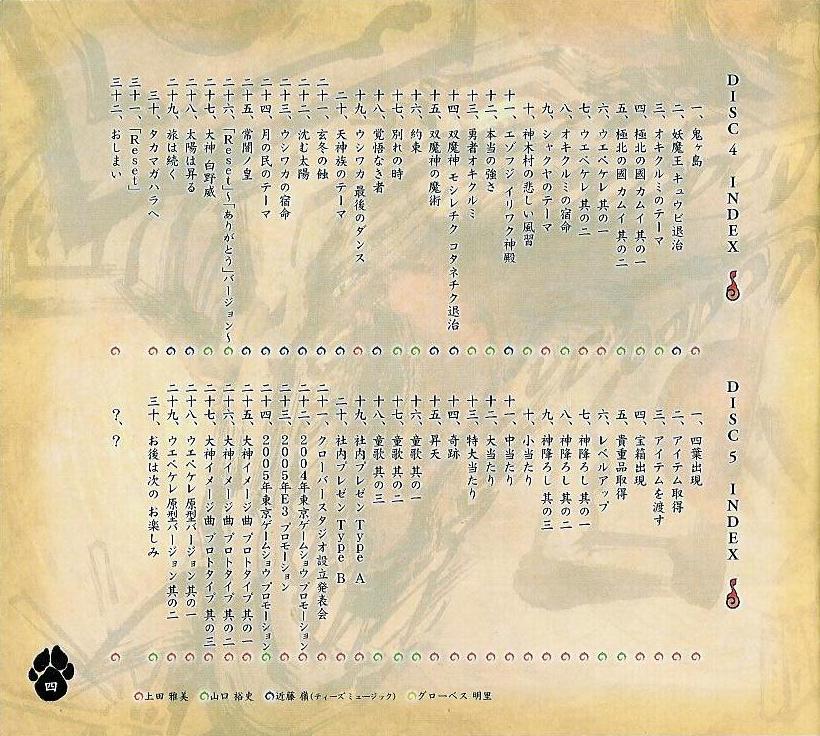 DISC 4 INDEX
一、鬼ヶ島
二、妖魔王 キュウビ退治
三、オキクルミのテーマ
四、極北の國 カムイ 其の一
五、極北の國 カムイ 其の二
六、ウエペケレ 其の一
七、ウエペケレ 其の二
八、オキクルミの宿命
九、シャクヤのテーマ
十、神木村の悲しい風習
十一、エゾフジ イリワク神殿
十二、本当の強さ
十三、勇者オキクルミ
十四、双魔神 モシレチク コタネチク退治
十五、双魔神の魔術
十六、約束
十七、別れの時
十八、覚悟なき者
十九、ウシワカ 最後のダンス
二十、天神族のテーマ
二十一、玄冬の蝕
二十二、沈む太陽
二十三、ウシワカの宿命
二十四、月の民のテーマ
二十五、常闇ノ皇
二十六、「Reset」〜「ありがとう」バージョン〜
二十七、大神 白野威
二十八、太陽は昇る
二十九、旅は続く
三十、タカマガハラへ
三十一、「Reset」
三十二、おしまい
DISC 5 INDEX
一、四葉出現
二、アイテム取得
三、アイテムを渡す
四、宝箱出現
五、貴重品取得
六、レベルアップ
七、神降ろし 其の一
八、神降ろし 其の二
九、神降ろし 其の三
十、小当たり
十一、中当たり
十二、大当たり
十三、特大当たり
十四、奇跡
十五、昇天
十六、童歌 其の一
十七、童歌 其の二
十八、童歌 其の三
十九、社内プレゼン Type A
二十、社内プレゼン Type B
二十一、クローバースタジオ設立発表会
二十二、2004年東京ゲームショウ プロモーション
二十三、2005年E3 プロモーション
二十四、2005年東京ゲームショウ プロモーション
二十五、大神イメージ曲 プロトタイプ 其の一
二十六、大神イメージ曲 プロトタイプ 其の二
二十七、大神イメージ曲 プロトタイプ 其の三
二十八、ウエペケレ原型バージョン 其の一
二十九、ウエペケレ原型バージョン 其の二
三十、お後は次の お楽しみ
？、？
上田 雅美 山口 裕史 近藤 嶺(ティーズミュージック) グローベス 明里
四